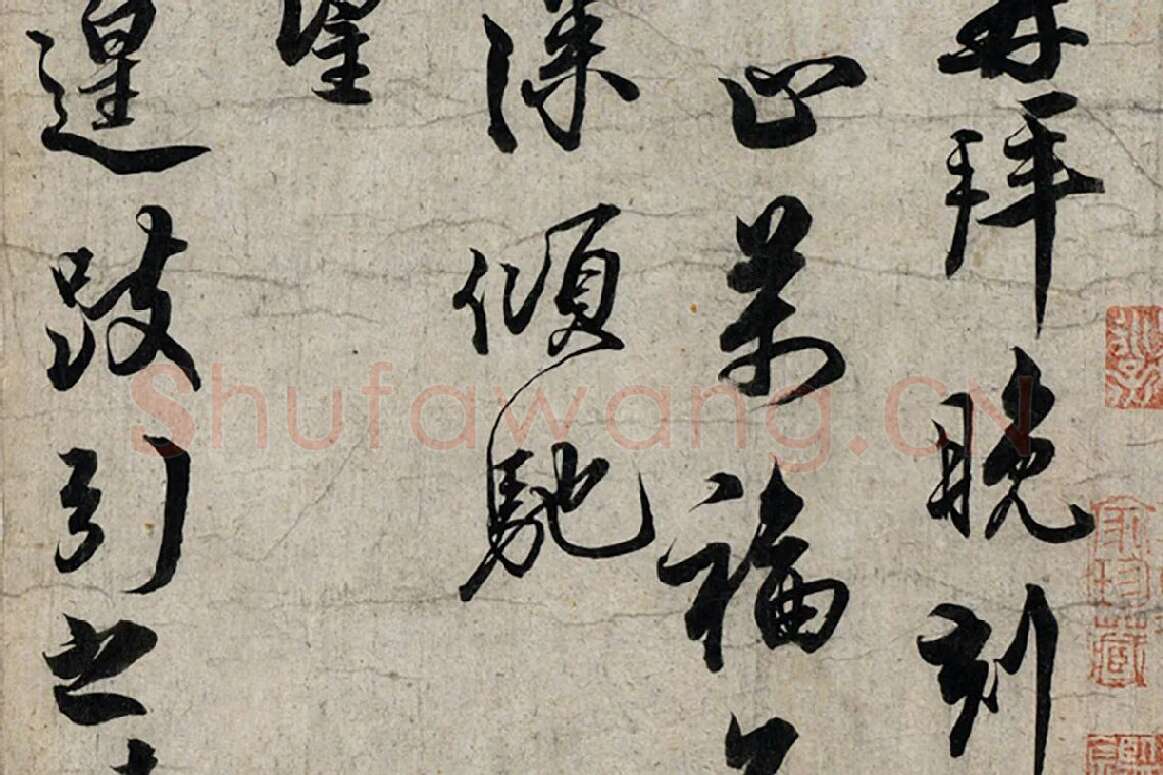 再拜晚刻
止萬福
深傾馳
望
遑跂引之
Shufawang.CN